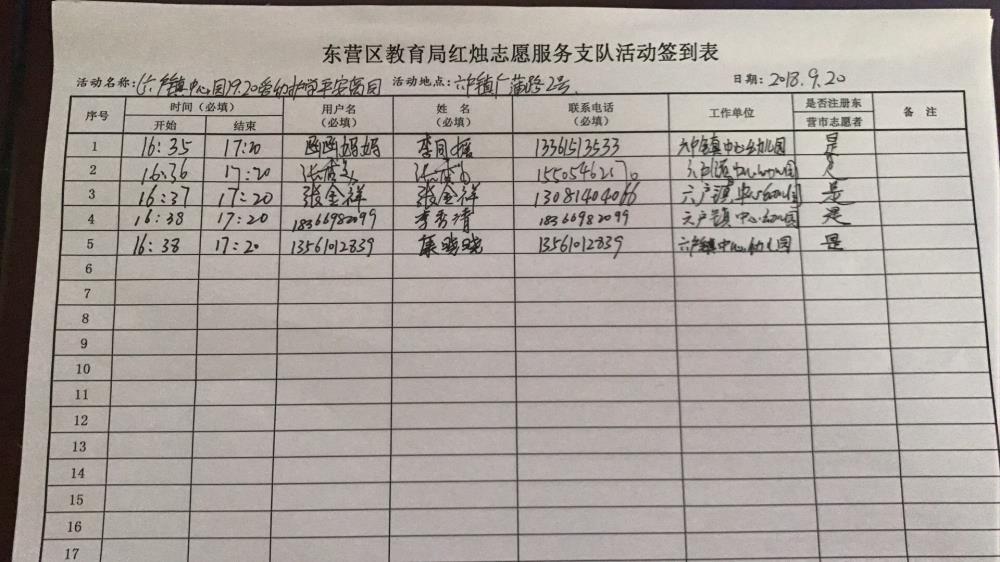 东营区教育局红烛志愿服务支队活动签到表
活动名称:六户镇中心园9.20 活动地点:六户镇广蒲路2号 日期:2018.9.20
序号 时间(必填) 用户名(必填) 姓名(必填) 联系电话(必填) 工作单位 是否注册东营市志愿者 备注
开始 结束
1 16:35 17:20 函函妈妈 13361513533 六户镇中心幼儿园 是
2 16:36 17:20 是
3 16:37 17:20 张金祥 张金祥 13081404066 六户镇中心幼儿园 是
4 16:38 17:20 18366982099 李秀清 18366982099 六户镇中心幼儿园 是
5 16:38 17:20 13561012839 康晓晓 13561012839 六户镇中心幼儿园 是
6
7
8
9
10
11
12
13
14
15
16
17